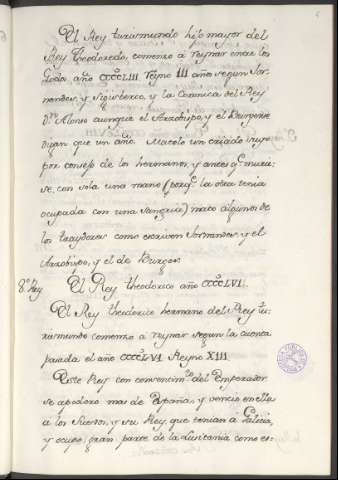 El Rey turismundo hijo mayor del
Rey Theodoredo, comenzo à reynar entre los
Godos año CCCCLIII reyno III años segun Jor-
nandes, y Sigisberto, y la Coronica del Rey
Dn. Alonso aunque el Arzobispo, y el Burgense
digan que un año. Matolo un criado suyo
por consejo de los hermanos, y antes qe. murie-
se, con sola una mano (porqe. la otra tenia
ocupada con una Sangria) mato algunos de
los traydores como escriven Jornandes, y el
Arzobispo, y el de Burgos.
8.o Rey El Rey theodorico año CCCCLVI.
El Rey theodorico hermano del Rey tu-
rismundo comenzo à reynar segun la cuenta
pasada el año CCCCLVI Reyno XIII.
Este Rey con consentim.to del Emperador
se apodero mas de España, y vencio en ella
a los Suevos, y su Rey, que tenian à Galicia,
y ocupo gran parte de la Lusitania como es-